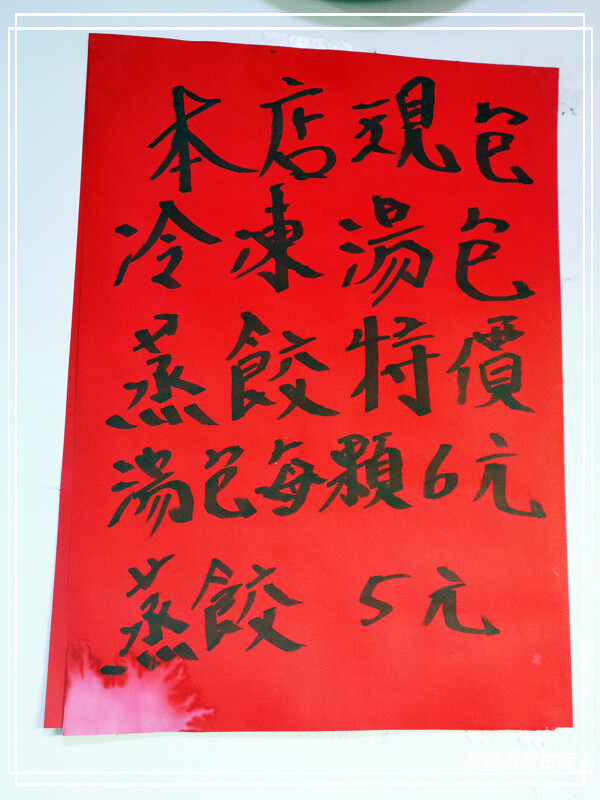 本店現包
冷凍湯包
蒸餃特價
湯包每顆6元
蒸餃 5元